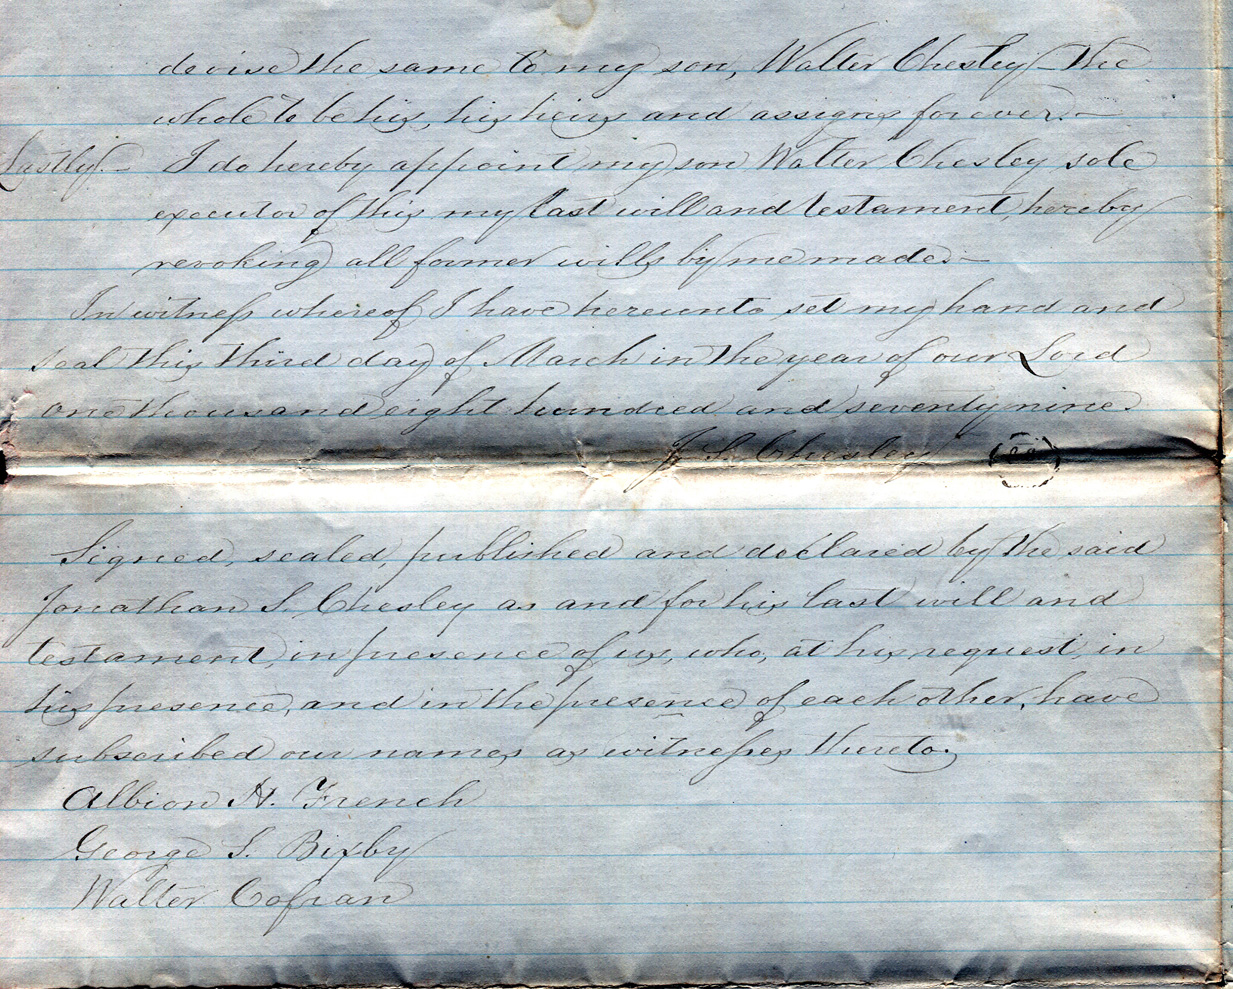 devise the same to my son, Walter Chesley – the
whole to be his, his heirs and assigns forever. –
Lastly. – I do hereby appoint my son Walter Chesley sole
executor of this my last will and testament, hereby
revoking all former wills by me made. –
In witness whereof I have hereunto set my hand and
seal this third day of March in the year of our Lord
one thousand eight hundred and seventy nine.
J. S. Chesley
Signed, sealed, published and declared by the said
Jonathan S. Chesley as and for his last will and
testament, in presence of us, who, at his request, in
his presence, and in the presence of each other, have
subscribed our names as witnesses thereto.
Albion H. French
George S. Bixby
Walter Cofran